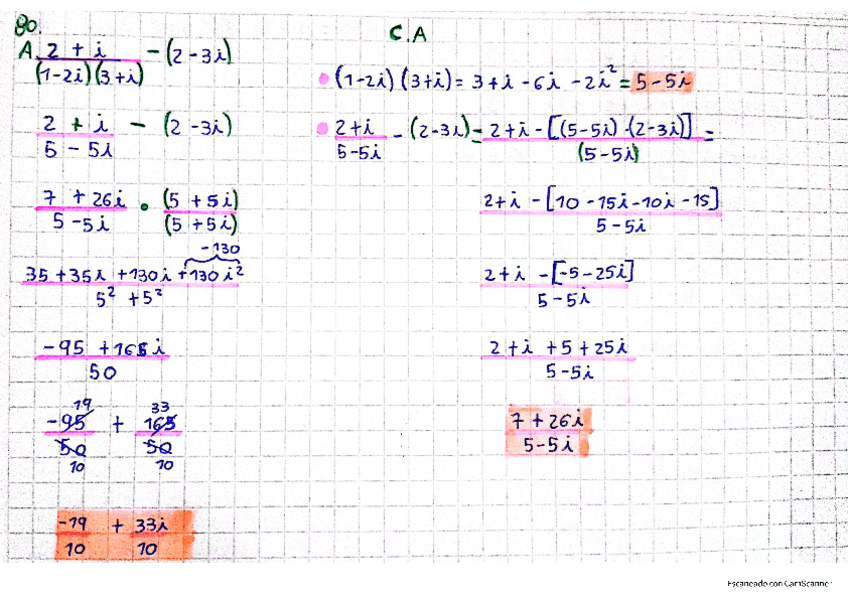 80.
A. (2 + i)/((1-2i)(3+i)) - (2-3i)
(2 + i)/(5 - 5i) - (2 -3i)
(7 + 26i)/(5-5i) • (5 + 5i)/(5 + 5i)
-130
(35 +35i +130i +130i²)/(5² + 5²)
(-95 +165i)/50
19 33
-95/50 + 165/50
10 10
-19/10 + 33i/10
C.A
(1-2i)(3+i) = 3+i -6i -2i² = 5-5i
(2+i)/(5-5i) - (2-3i) = (2+i - [(5-5i)·(2-3i)])/(5-5i) =
(2+i - [10 -15i -10i -15])/(5-5i)
(2+i -[-5-25i])/(5-5i)
(2+i +5+25i)/(5-5i)
(7+26i)/(5-5i)
Escaneado con CamScanner